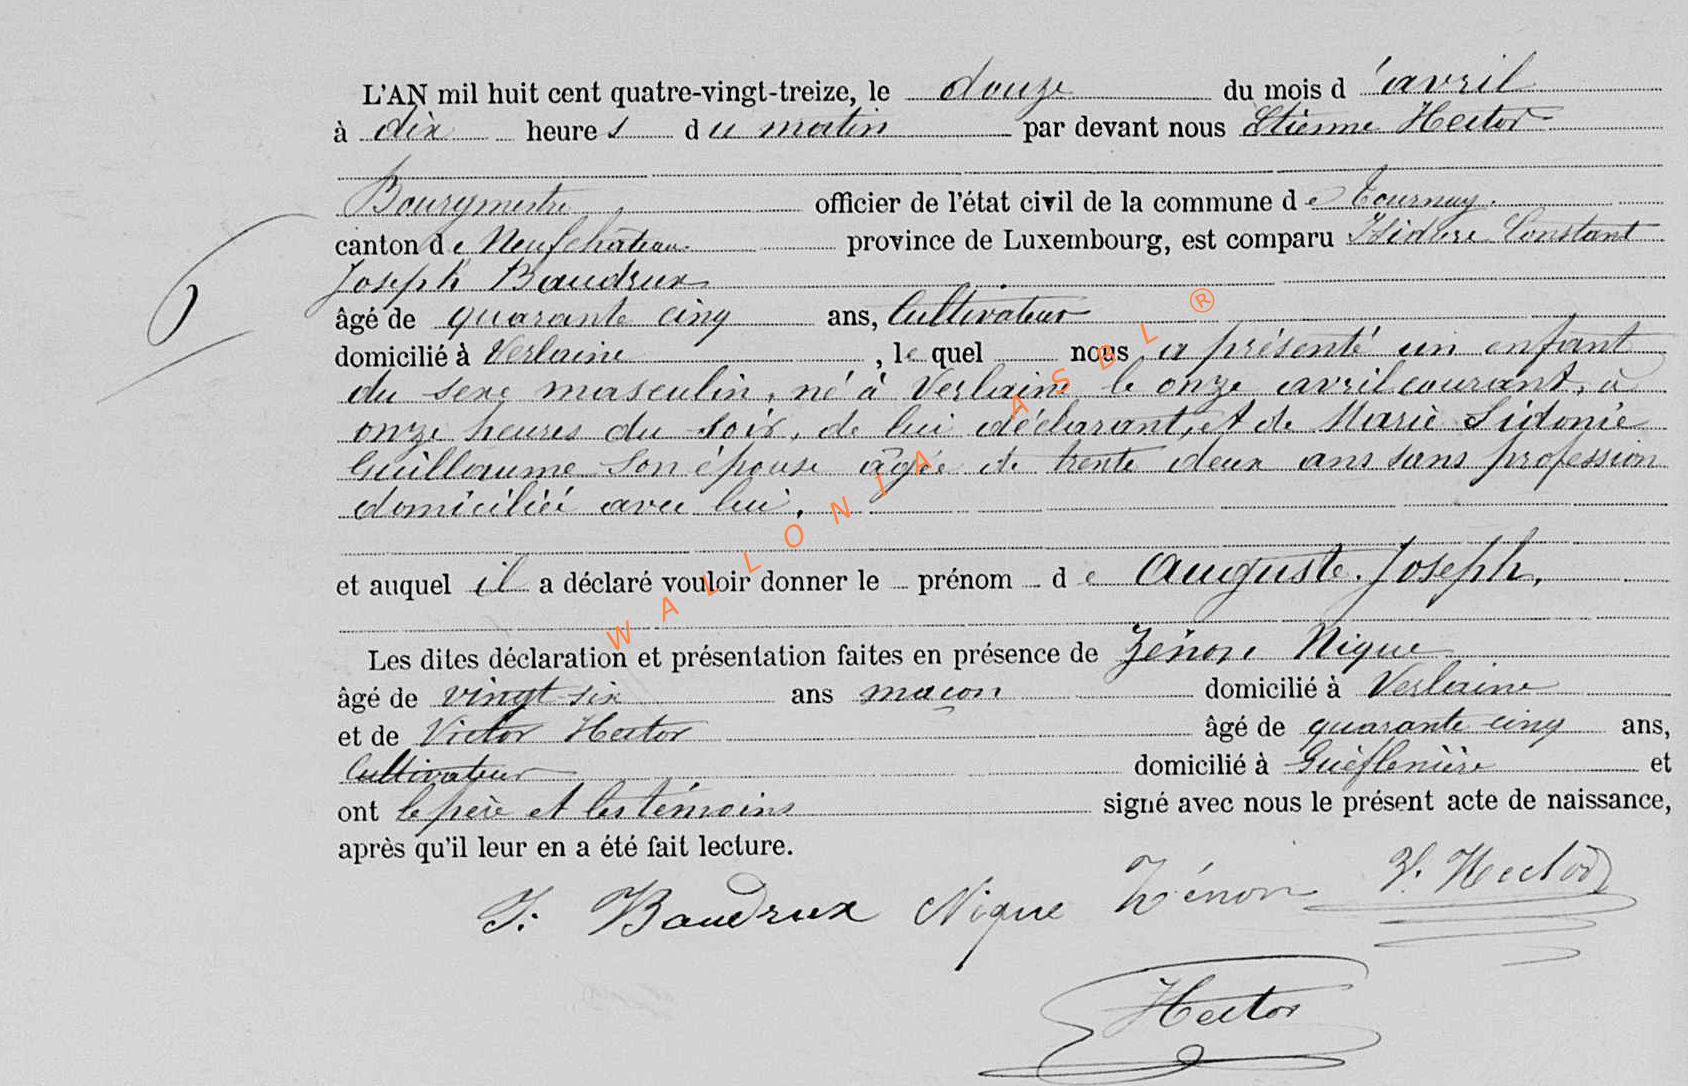 L'AN mil huit cent quatre-vingt-treize, le douze du mois d'avril
à dix heures du matin par devant nous Etienne Hector
Bourgmestre officier de l'état civil de la commune de Tournay.
canton de Neufchateau province de Luxembourg, est comparu Isidore Constant
Joseph Baudrux
âgé de quarante cinq ans, Cultivateur
domicilié à Verlaine, lequel nous a présenté un enfant
du sexe masculin, né à Verlaine le onze avril courant, à
onze heures du soir, de lui déclarant, et de Marie Sidonie
Guillaume son épouse âgée de trente deux ans sans profession
domiciliée avec lui.
et auquel il a déclaré vouloir donner le prénom de Auguste. Joseph.
Les dites déclaration et présentation faites en présence de Zénon Nique
âgé de vingt six ans maçon domicilié à Verlaine
et de Victor Hector âgé de quarante cinq ans,
Cultivateur domicilié à et
ont le père et les témoins signé avec nous le présent acte de naissance,
après qu'il leur en a été fait lecture.
J. Baudrux Nique Zénon V. Hector
Hector
WALLONIA ASBL ®